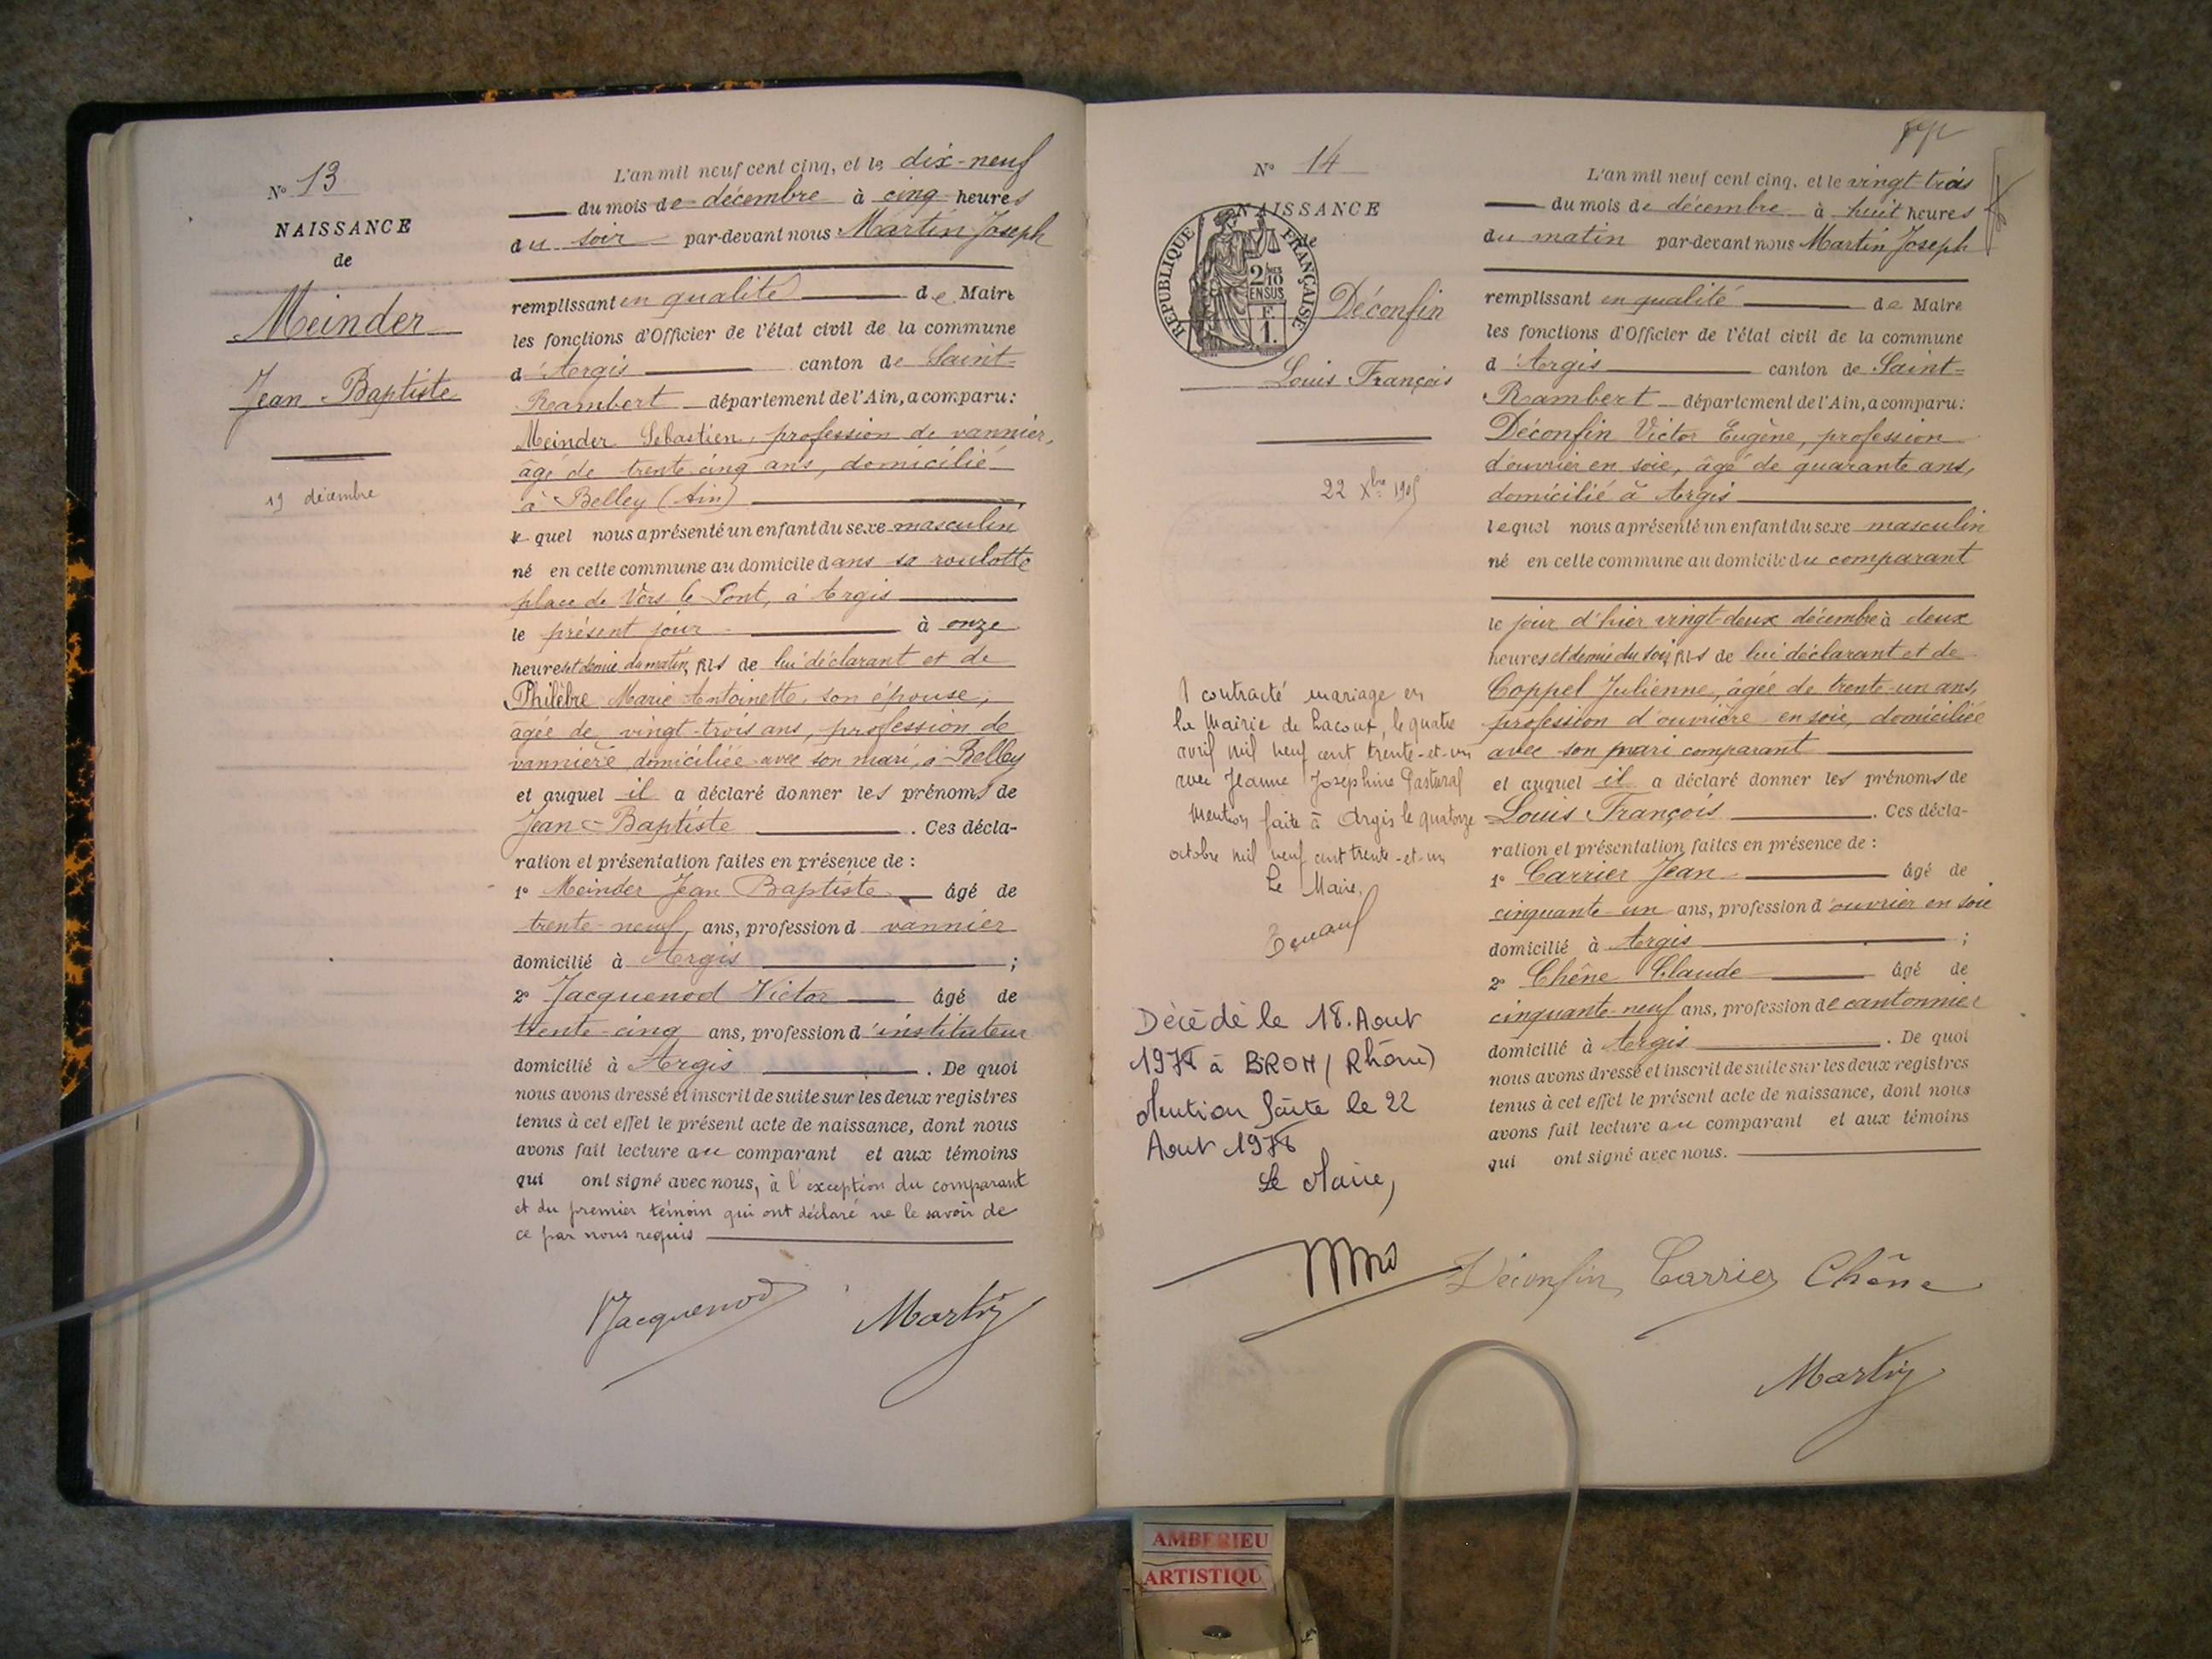 N° 13
NAISSANCE
de
Meinder
Jean Baptiste
19 décembre
L'an mil neuf cent cinq, et le dix-neuf
du mois de décembre à cinq heures
du soir par-devant nous Martin Joseph
remplissant en qualité de Maire
les fonctions d'Officier de l'état civil de la commune
d'Argis canton de Saint=
Rambert département de l'Ain, a comparu:
Meinder Sébastien, profession de vannier,
âgé de trente-cinq ans, domicilié
à Belley (Ain)
lequel nous a présenté un enfant du sexe masculin
né en cette commune au domicile dans sa roulotte
place de Vers le Pont, à Argis
le présent jour à onze
heures et demie du matin, fils de lui déclarant et de
Philèbre Marie Antoinette, son épouse,
âgée de vingt-trois ans, profession de
vannière domiciliée avec son mari, à Belley
et auquel il a déclaré donner les prénoms de
Jean-Baptiste . Ces décla-
ration et présentation faites en présence de :
1° Meinder Jean Baptiste âgé de
trente-neuf ans, profession d vannier
domicilié à Argis ;
2° Jacquenod Victor âgé de
trente-cinq ans, profession d'instituteur
domicilié à Argis . De quoi
nous avons dressé et inscrit de suite sur les deux registres
tenus à cet effet le présent acte de naissance, dont nous
avons fait lecture au comparant et aux témoins
qui ont signé avec nous, à l'exception du comparant
et du premier témoin qui ont déclaré ne le savoir de
ce par nous requis
Jacquenod Martin
N° 14
NAISSANCE
de
RÉPUBLIQUE FRANÇAISE
2/10
EN SUS
F.
1.
Déconfin
Louis François
22 Xbre 1905
A contracté mariage en
la Mairie de Lacoux, le quatre
avril mil neuf cent trente-et-un
avec Jeanne Joséphine Pastural
Mention faite à Argis le quatorze
octobre mil neuf cent trente-et-un
Le Maire,
Décédé le 18. Aout
1978 à BRON (Rhône)
Mention faite le 22
Aout 1978
Le Maire,
L'an mil neuf cent cinq, et le vingt-trois
du mois de décembre à huit heures
du matin par-devant nous Martin Joseph
remplissant en qualité de Maire
les fonctions d'Officier de l'état civil de la commune
d'Argis canton de Saint=
Rambert département de l'Ain, a comparu:
Déconfin Victor Eugène, profession
d'ouvrier en soie, âgé de quarante ans,
domicilié à Argis
lequel nous a présenté un enfant du sexe masculin
né en cette commune au domicile du comparant
le jour d'hier vingt-deux décembre à deux
heures et demie du soir, fils de lui déclarant et de
Coppel Julienne, âgée de trente-un ans,
profession d'ouvrière en soie, domiciliée
avec son mari comparant
et auquel il a déclaré donner les prénoms de
Louis François . Ces décla-
ration et présentation faites en présence de :
1° Carrier Jean âgé de
cinquante-un ans, profession d'ouvrier en soie
domicilié à Argis ;
2° Chêne Claude âgé de
cinquante-neuf ans, profession de cantonnier
domicilié à Argis . De quoi
nous avons dressé et inscrit de suite sur les deux registres
tenus à cet effet le présent acte de naissance, dont nous
avons fait lecture au comparant et aux témoins
qui ont signé avec nous.
Déconfin Carrier Chêne
Martin
AMBERIEU
ARTISTIQU